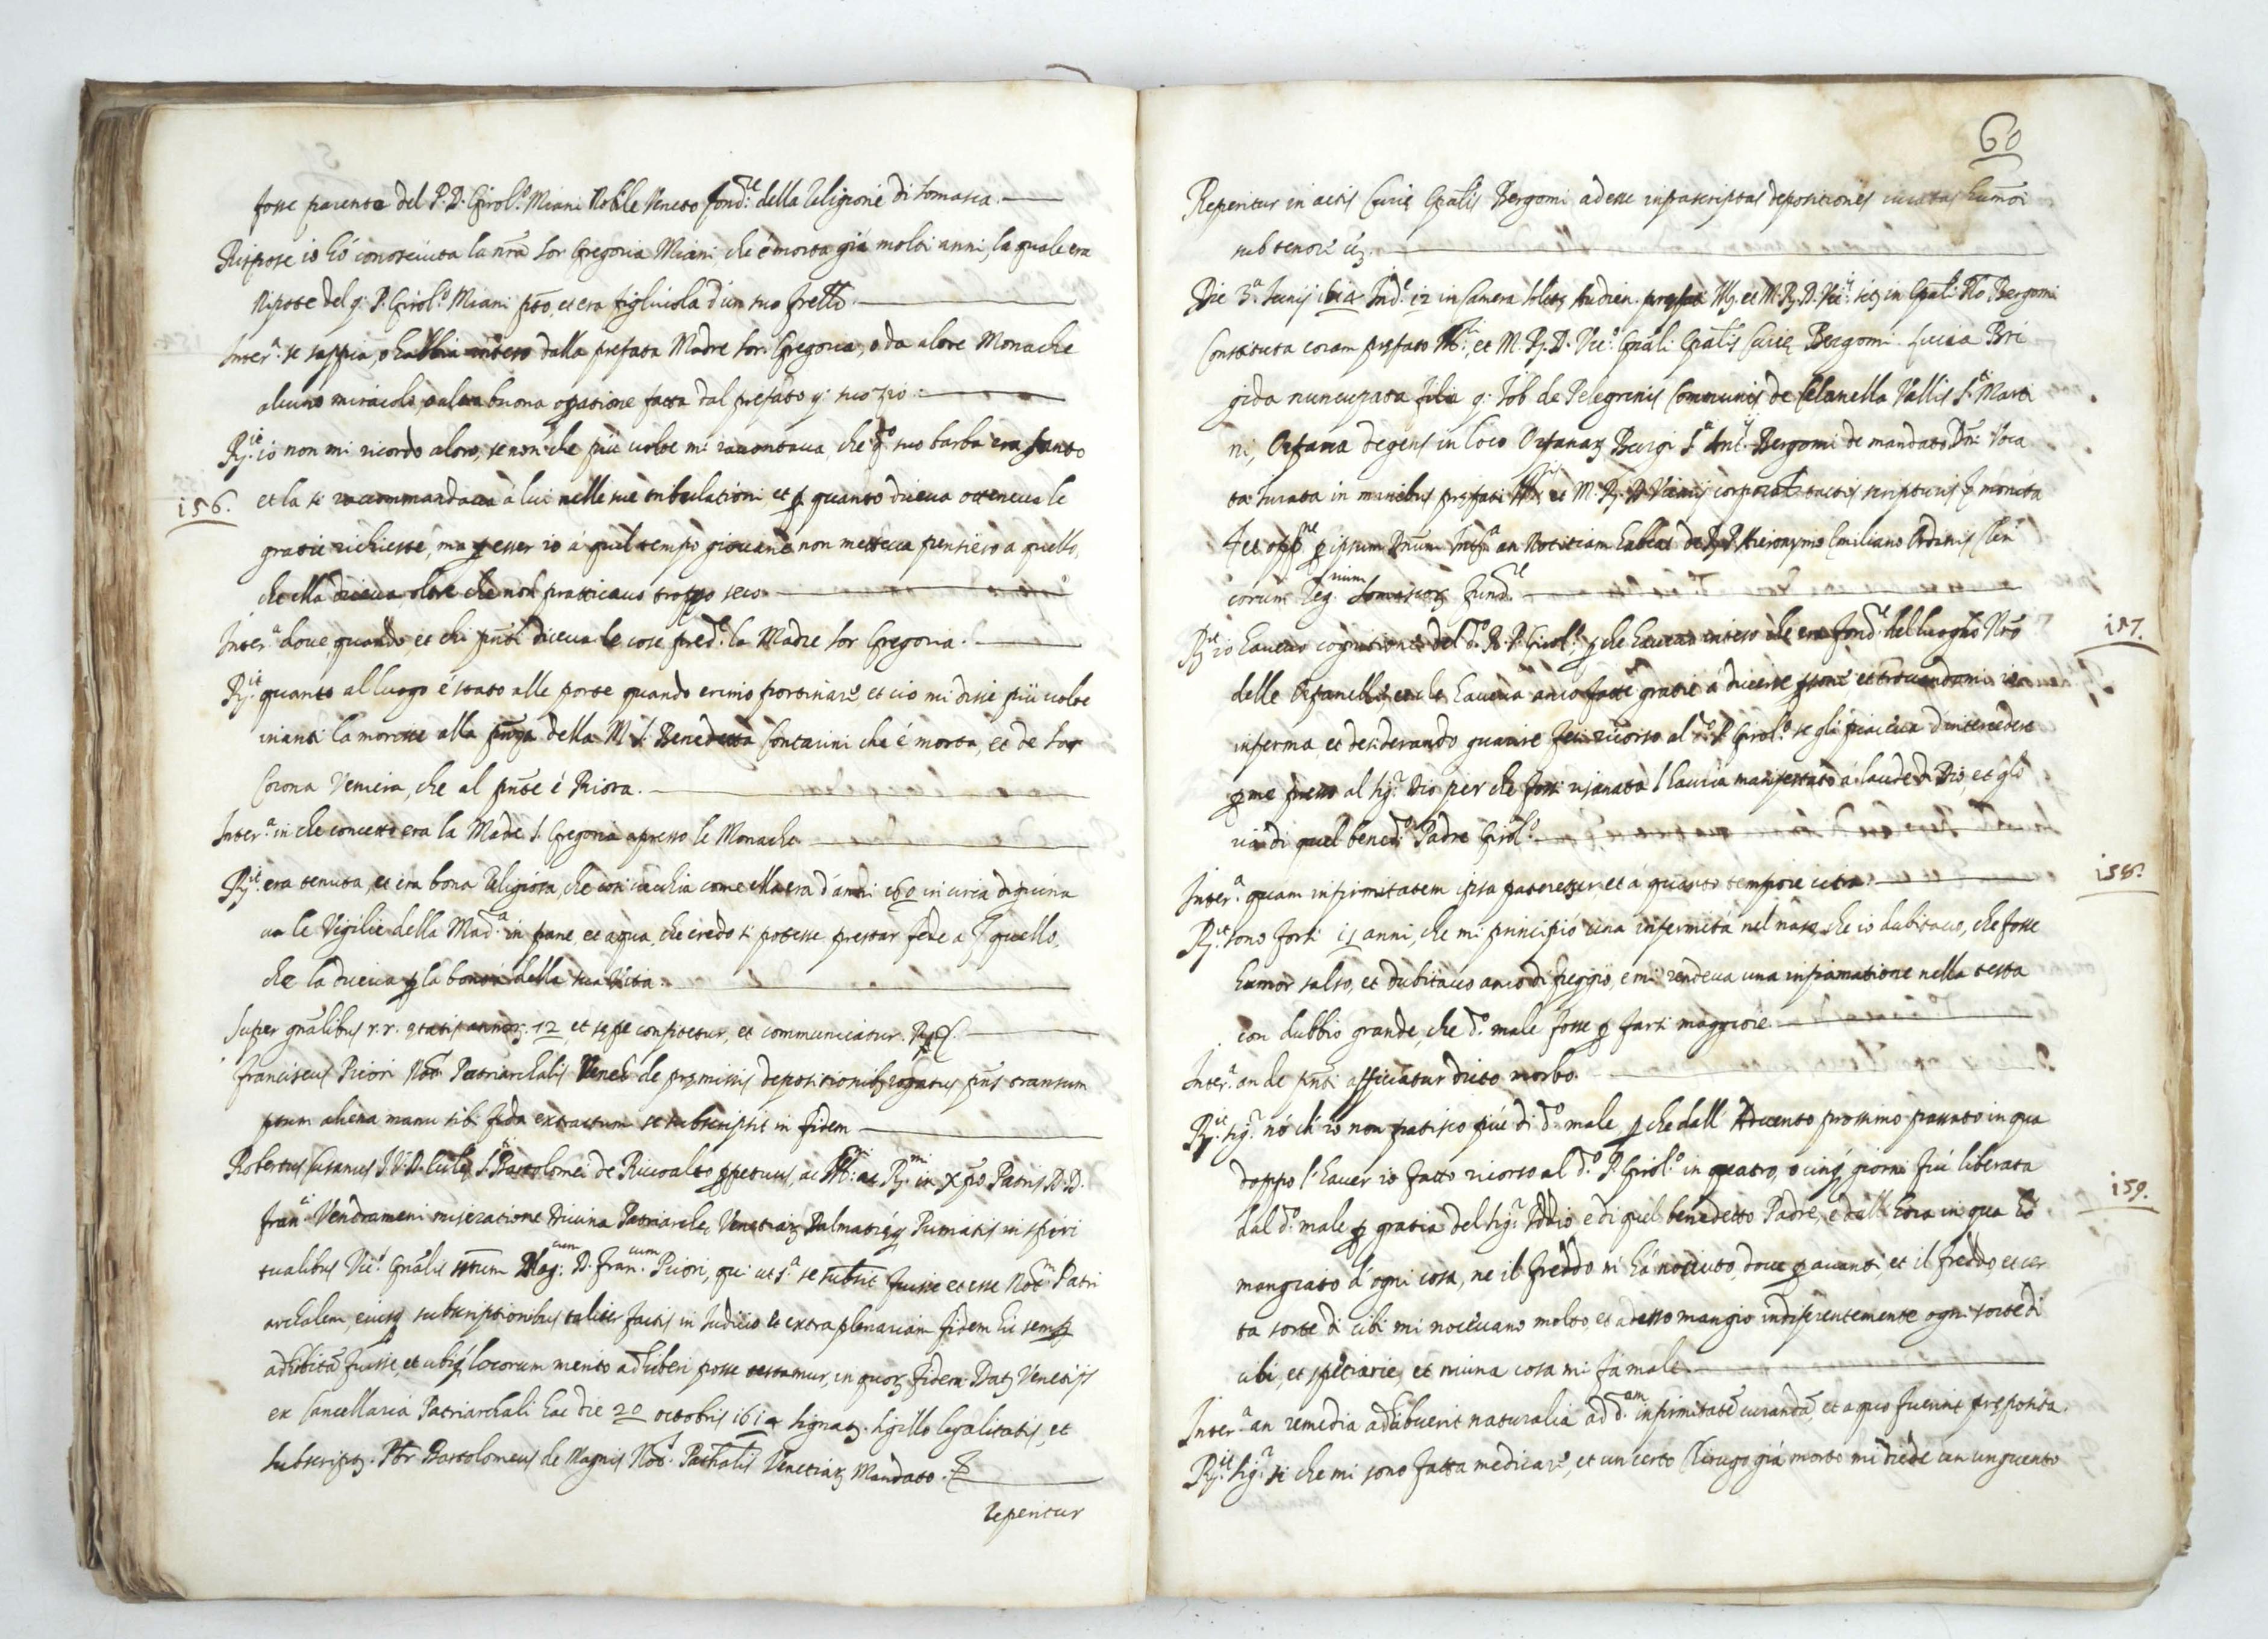 fosse parente del P. D. Girol.º Miani Nobile Veneto fond.re della Religione di Somasca.
Rispose io hó conosciuta la nr̃a Sor Gregoria Miani che é morta giá molti anni, la quale era
Nipote del q. P. Girol.º Miani pto, et era figliuola d'un suo frello.
Inter.ª se sappia, o habbia inteso dalla prefata Madre Sor Gregoria, o da altre Monache
alcuno miracolo, o altra buona operatione fatta dal prefato q. suo zio.
Rj.it io non mi ricordo altro, se non che piú volte mi raccontaua, che q.º suo barba era santo
156. et la si raccommandaua á lui nelle sue tribulationi, et p quanto diceua otteneua le
gratie richieste, ma p esser io á quel tempo giouane non metteua pensiero a quello,
che ella diceua, oltre che non pratticauo troppo seco.
Inter.ª doue, quando, et chi pñti diceua le cose pred.e la Madre Sor Gregoria.
Rj.it quanto al luogo é stato alle porte quando erimo portinare, et ció mi disse piú volte
inanti la morisse alla pñza della M. S. Benedetta Contarini che é morta, et de Sor
Corona Veniera, che al pñte é Priora.
Inter.ª in che concetto era la Made S. Gregoria apresso le Monache
Rj.it era tenuta, et era bona Religiosa, che cosí vecchia come ella era d'anni 60 in circa digiuna
ua le Vigilie della Mad.ª in pane, et aqua, che credo si potesse prestar fede a quello,
che la diceua p la bontá della sua Vita.
Super gñalibus r. r. etatis annor. 72 et sepe confitetur, et communicatur.
Franciscus Piciori Not. Patriarchalis Venet. de premissis depositionib; rogatus pñs transum
ptum aliena manu sibi fida extractum se subscripsit in fidem
Robertus I. V. D. S.ti Bartolomei de Riuoalto ppetuus, ac Ill.mi ac Rj.mi in Xpo Patris D. D.
Fran.ci Vendrameni miseratione Diuina Patriarche Venetiar. Dalmatieq; Primatis in spiri
tualibus Vic.s Gñalis Mag.cum D. Fran.cum Piciori, qui ut s.ª se subsit fuisse et esse Not.m Patri
archalem, eiusq; subscriptionibus taliter factis in Iudicio et extra plenariam fidem hic semp
adhibitã fuisse, et ubiq; locorum merito adhiberi posse testamur, in quor. fidem Dat. Venetijs
ex Cancellaria Patriarchali hac die 20 octobris 1614 signat. sigillo legalitatis, et
subscript. Pbr Bartolomeus de Magnis Not. Pathalis Venetiar. Mandato.
repentur
60
Reperitur in actis Curie Epalis Bergomi adesse infrascriptas depositiones iuratas humõi
sub tenore
Die 3.ª Iunij 1614 Ind.e 12 in Camera solite Audien. prefati Ill. et M. Rj. D. Vic.ij in Epali Bergomi
Constituta coram prefato Ill.ri, et M. Rj. D. Vic.º Gñali Epalis Curie Bergomi Lucia Bri
gida nuncupata filia q. Iob de Pelegrinis Communis de Celanella Vallis S.ti Marti
ni, Orfana degens in loco Orfanar. Burgi S.ti Ant.ij Bergomi de mandato Dni Voca
ta Iurata in manibus prefati Ill.ris et M. Rj. D. Vicarij corporal. tactis scripturis monita
et p ipsum Dnum Int.ª an Notitiam habeat de R. P. Hieronymo Emiliano Ordinis Cler
icorum Reg. Somascor. Fund.re
157. Rj.it io haueuo cognitione del d.º R. P. Girol.º p che haueuo inteso che era fond.re del luogho Nrõ
delle Orfanelle et che haueua anco fatte gratie á diuerse psone et trouandomi io
inferma, et desiderando guarire feci ricorso al d.º P. Girol.º se gli piaceua d'intercedere
p me presso al Sig.r Dio per che fossi risanata l'hauria manifestato á laude di Dio, et glo
ria di quel bened.º Padre Girol.º
158. Inter.ª quam infirmitatem ipsa pateretur, et a quanto tempore citra.
Rj.it sono forsi 15 anni, che mi principió una infermitá nel naso che io dubitauo, che fosse
humor salso, et dubitauo anco di peggio, e mi rendeua una infiamatione nella testa
con dubbio grande, che d.º male fosse p farsi maggiore.
Inter.ª an de pñti afficiatur dicto morbo.
Rj.it Sig.r nó ch'io non patisco piú di d.º male, p che dall' Aduento prossimo passato in qua
159. doppo l'hauer io fatto ricorso al d.º P. Girol.º in quatro, o cinq; giorni fui liberata
dal d.º male p gratia del Sig.r Iddio e di quel benedetto Padre, e dall'hora in qua hó
mangiato d'ogni cosa, ne il freddo mi há nociuto, doue p auanti, et il freddo, et cer
ta sorte di cibi mi noceuano molto, et adesso mangio indiferentemente ogni sorte di
cibi, et speciarie, et niuna cosa mi fá male.
Inter.ª an remedia adhibuerit naturalia ad d.am infirmitatẽ curandã, et a quo fuerint preposita.
Rj.it Sig.r si che mi sono fatta medicare, et un certo Cirugo giá morto mi diede un unguento